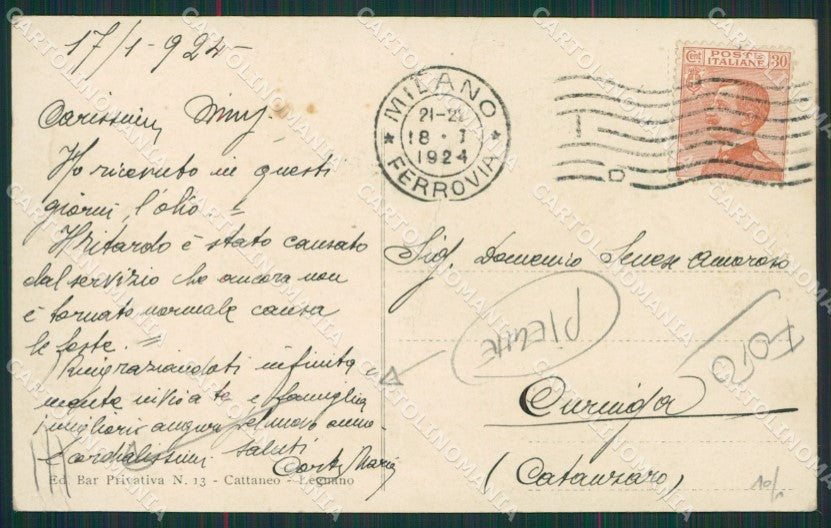 17/1-924-
Carissimo Mimy.
Ho ricevuto in questi
giorni, l'olio =
Il ritardo è stato causato
dal servizio che ancora non
è tornato normale causa
le feste. =
Ringraziandoti infinita
mente invio a te e famiglia
i migliori auguri pel nuovo anno.
Cordialissimi saluti
Ed. Bar Privativa N. 13 - Cattaneo - Legnano
MILANO
21-22
18 · I
1924
FERROVIA
POSTE
ITALIANE
Cent 30
Sig. Domenico Senese Amoroso
PIEGHE
FOTO
Curinga
(Catanzaro)
CARTOLINOMANIA